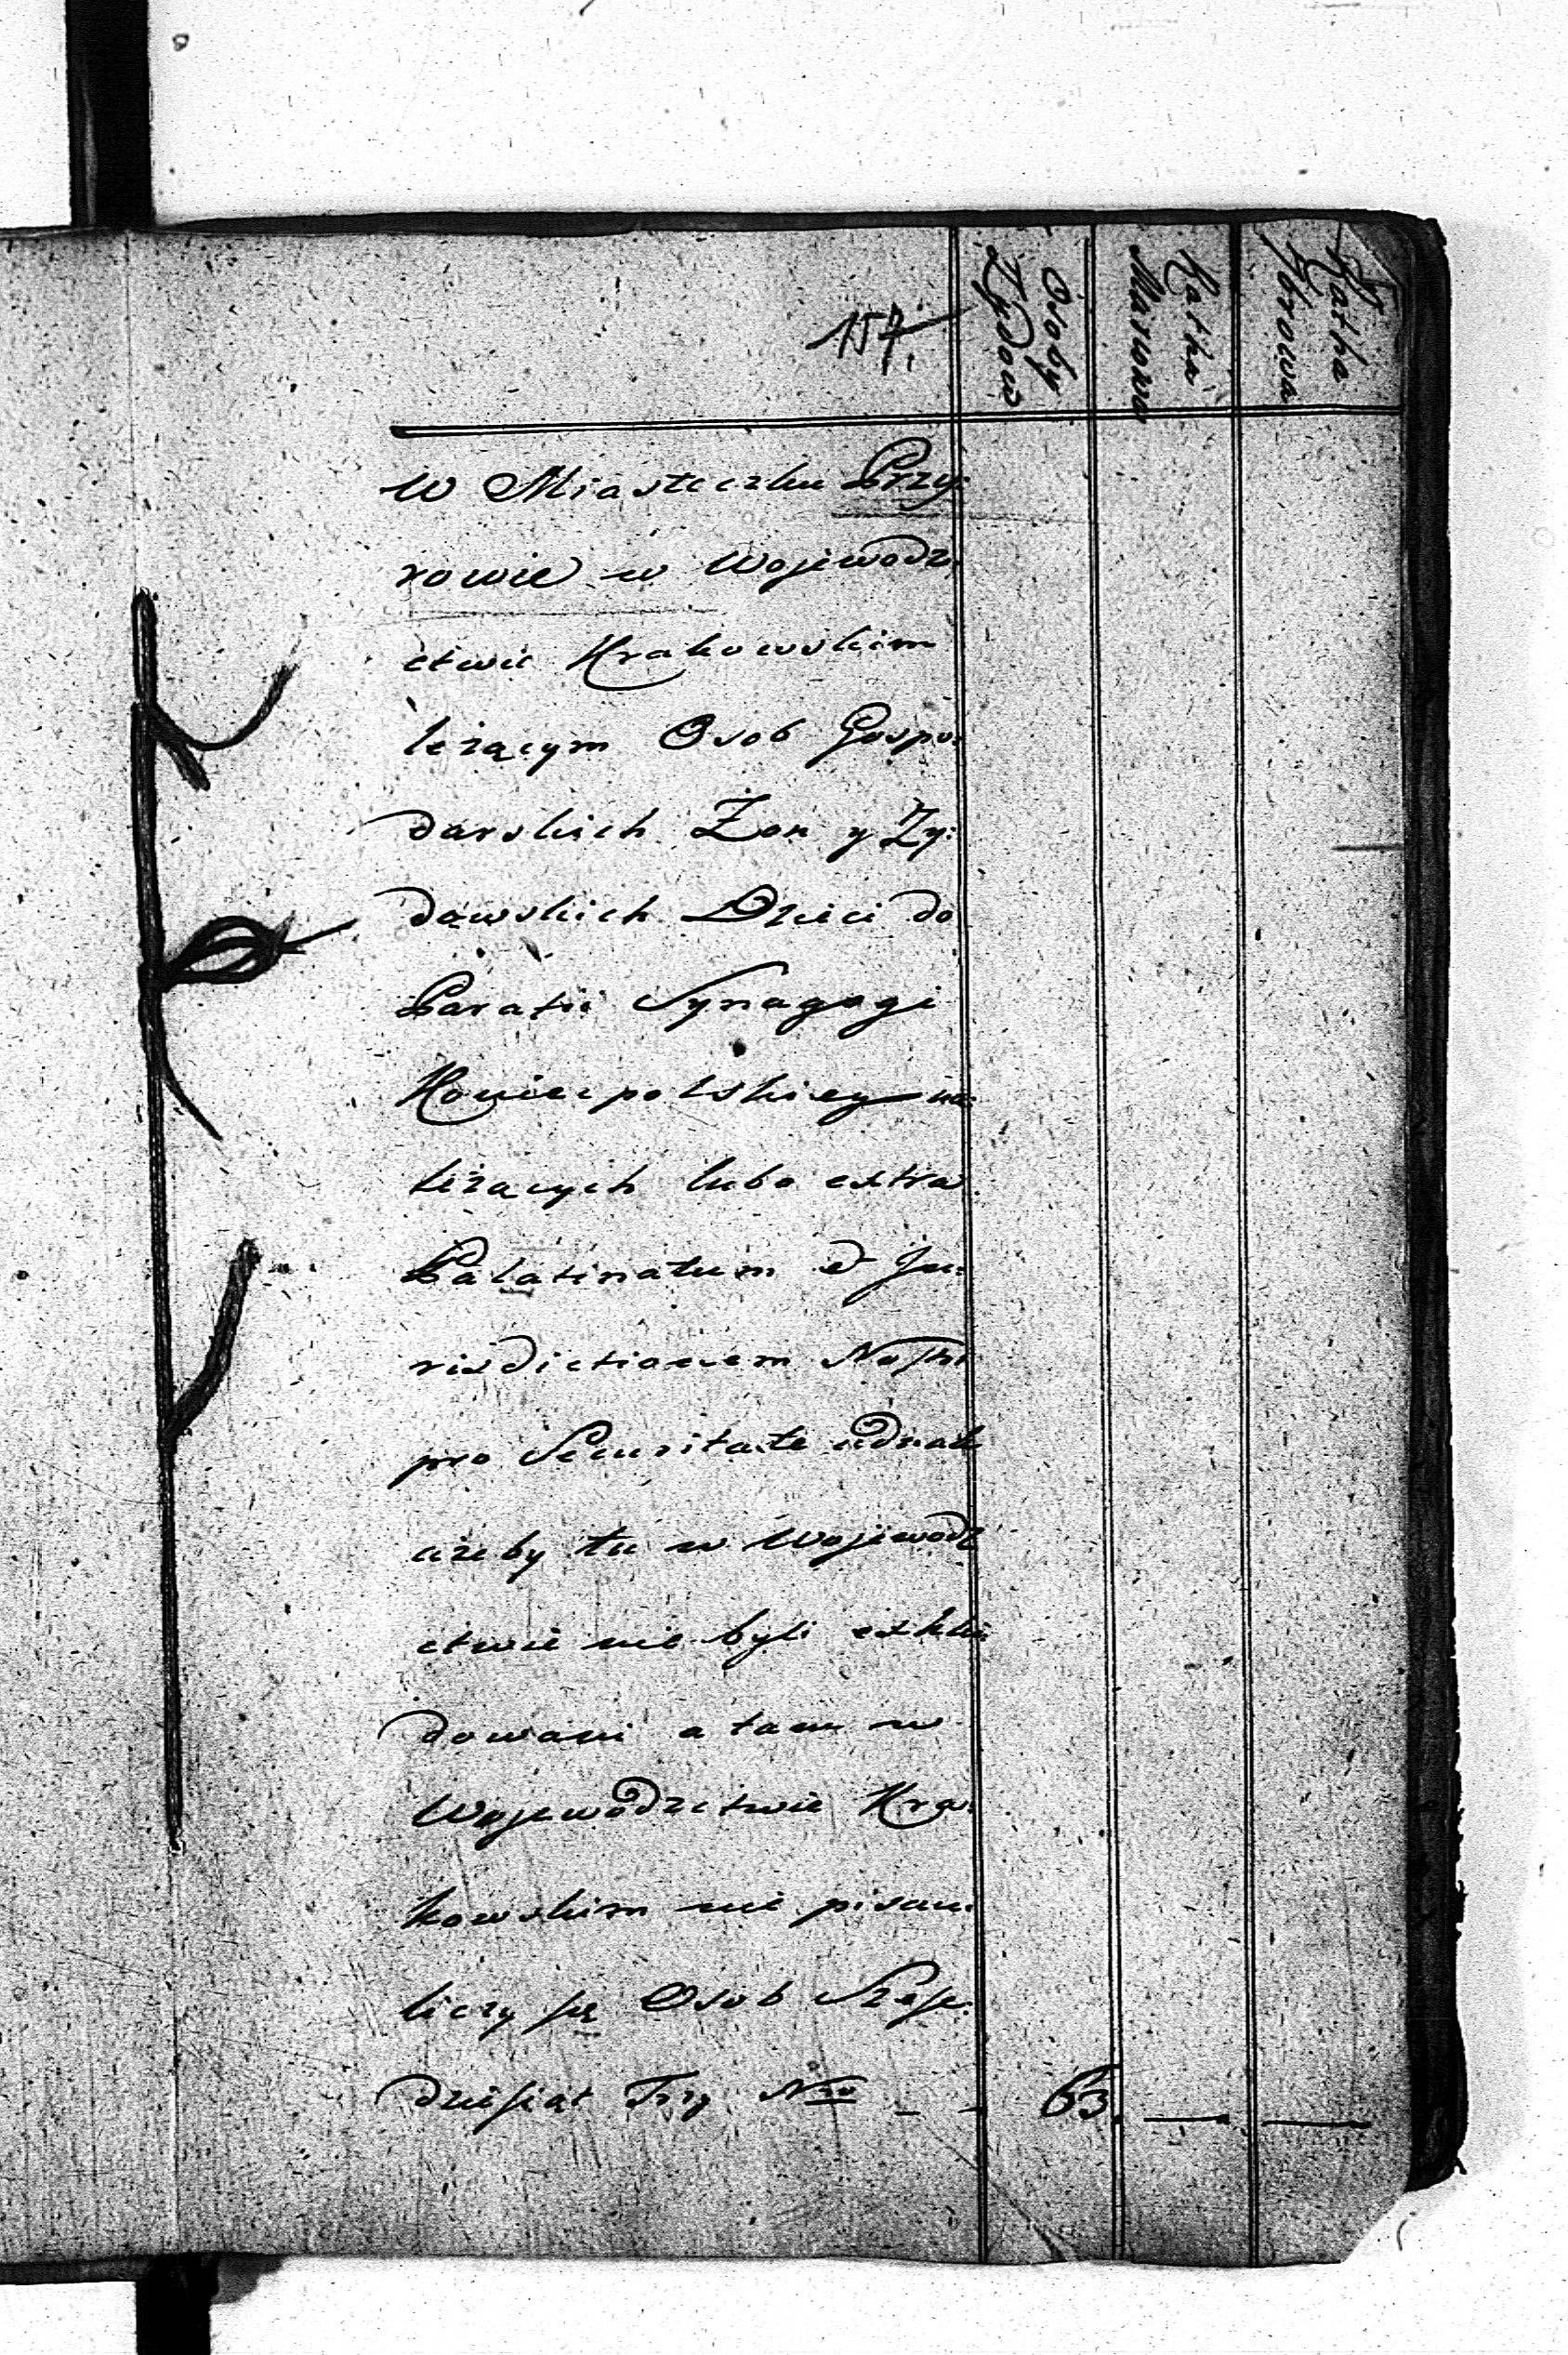 157.
Osoby
Zydow
Ratha
Marcowa
Ratha
7browa
W Miasteczku Przy:
rowie w Wojewodz:
ctwie Krakowskim
leżącym Osob Gospo:
darskich Żon y Zy:
dowskich Dzieci do
Parafii Synagogi
Koniecpolskiey na:
leżących lubo extra
Palatinatum et Ju:
risdictionem Nostr
pro Securitate iednak
ażeby tu w Wojewodz
ctwie nie byli exklu:
dowani a tam w
Wojewodztwie Kra:
kowskim nie pisani
liczy się Osob Szeſc:
dzieſiąt Trzy Nro - - 63. — —